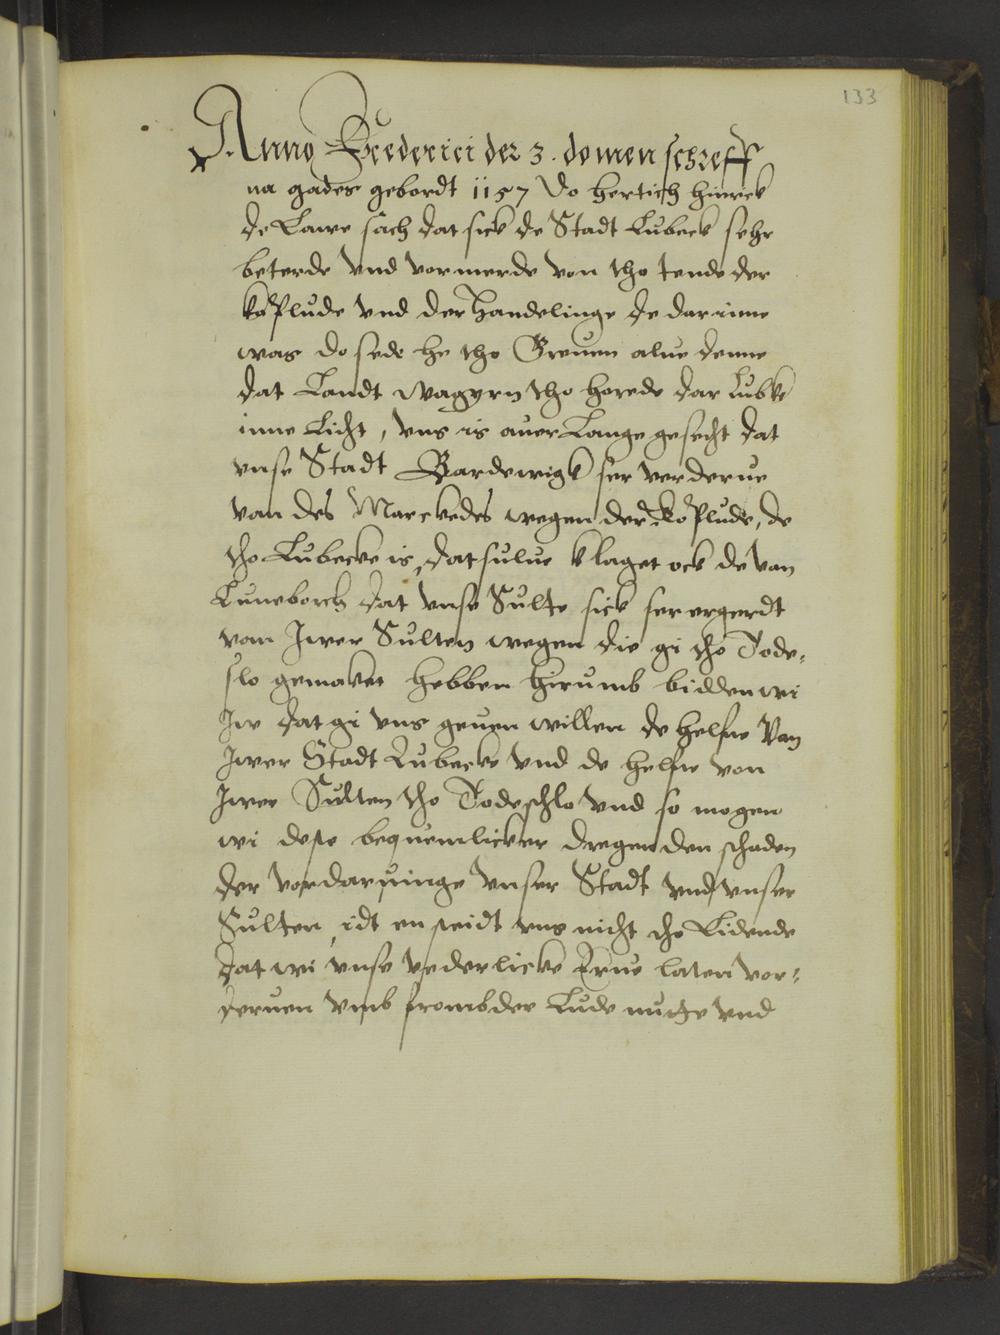 133
Anno Frederici der 3. do men schreff
na gades gebordt 1157 do hertich hinrick
de Lawe sach dat sick de Stadt Lubeck sehr
beterde vnd vormerde von tho tende der
koplude vnd der Handelinge de dar inne
was do sede he tho Greuen alue deme
dat Landt wagyrn tho horede dar Lubke
inne Licht, vns is auer Lange gesecht dat
vnse Stadt Bardewigk ser verderue
van des Marckedes wegen der Koplude, de
tho Lubecke is, dat sulue klaget ock de van
Luneborch dat vnse Sulte sick ser ergerdt
van Jwer Sulten wegen die gi tho Tode-
slo gemaket hebben hirumb bidden wi
Jw dat gi vns geuen willen de helfte Van
Jwer Stadt Lubecke vnd de helfte von
Jwer Sulten tho Todeschlo vnd so mogen
wi deste bequemlicker dregen den schaden
der vordaruinge vnser Stadt vnd vnser
Sulten, idt en steidt vns nicht tho Lidende
dat wi vnse vederlicke Erue laten vor-
deruen vmb frombder Lude nutte vnd